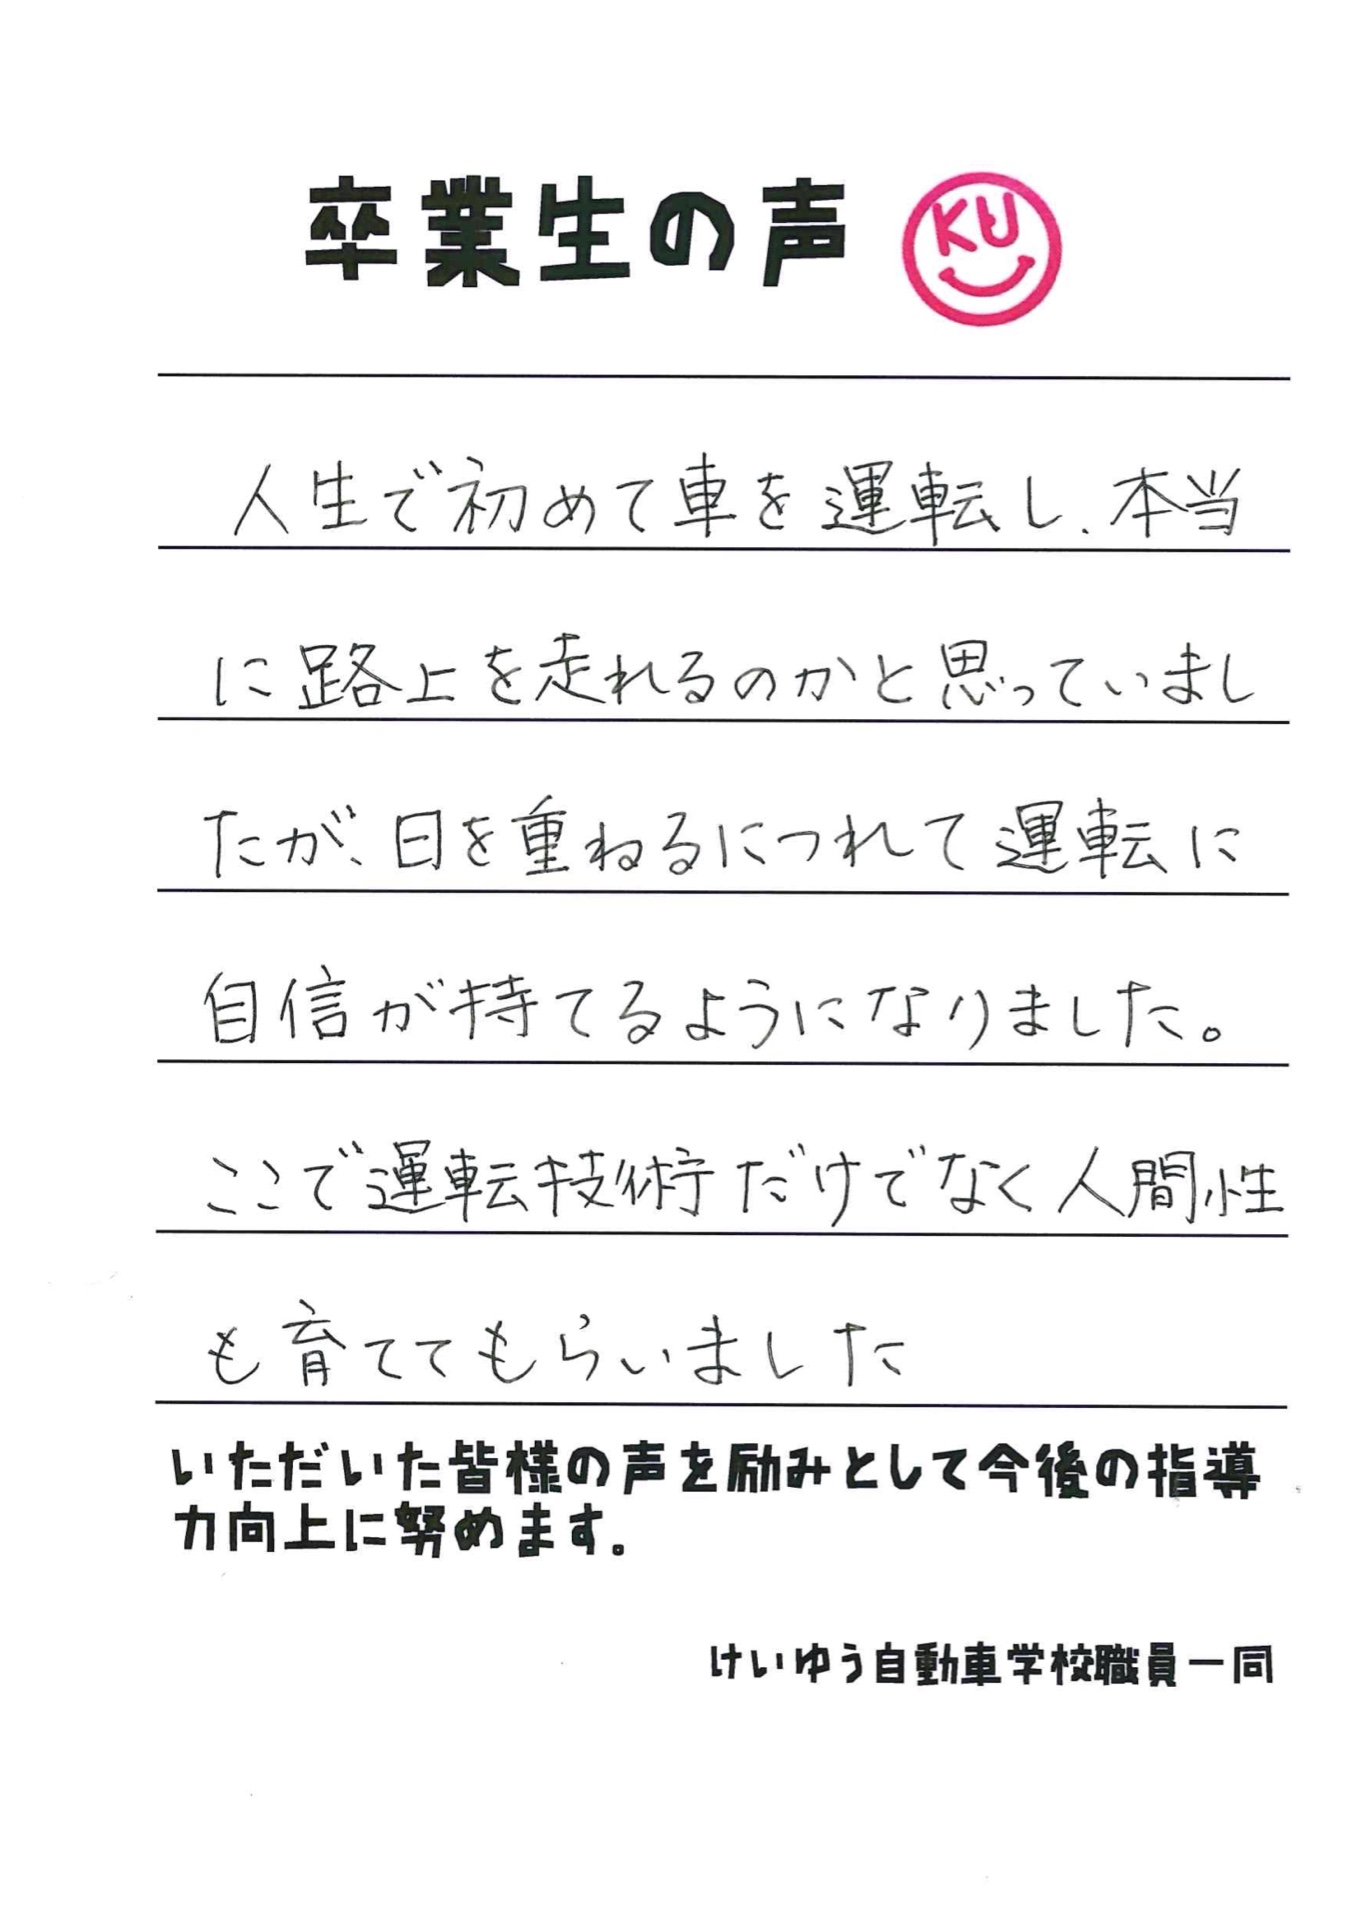 卒業生の声
KU
人生で初めて車を運転し、本当
に路上を走れるのかと思っていまし
たが、日を重ねるにつれて運転に
自信が持てるようになりました。
ここで運転技術だけでなく人間性
も育ててもらいました
いただいた皆様の声を励みとして今後の指導
力向上に努めます。
けいゆう自動車学校職員一同